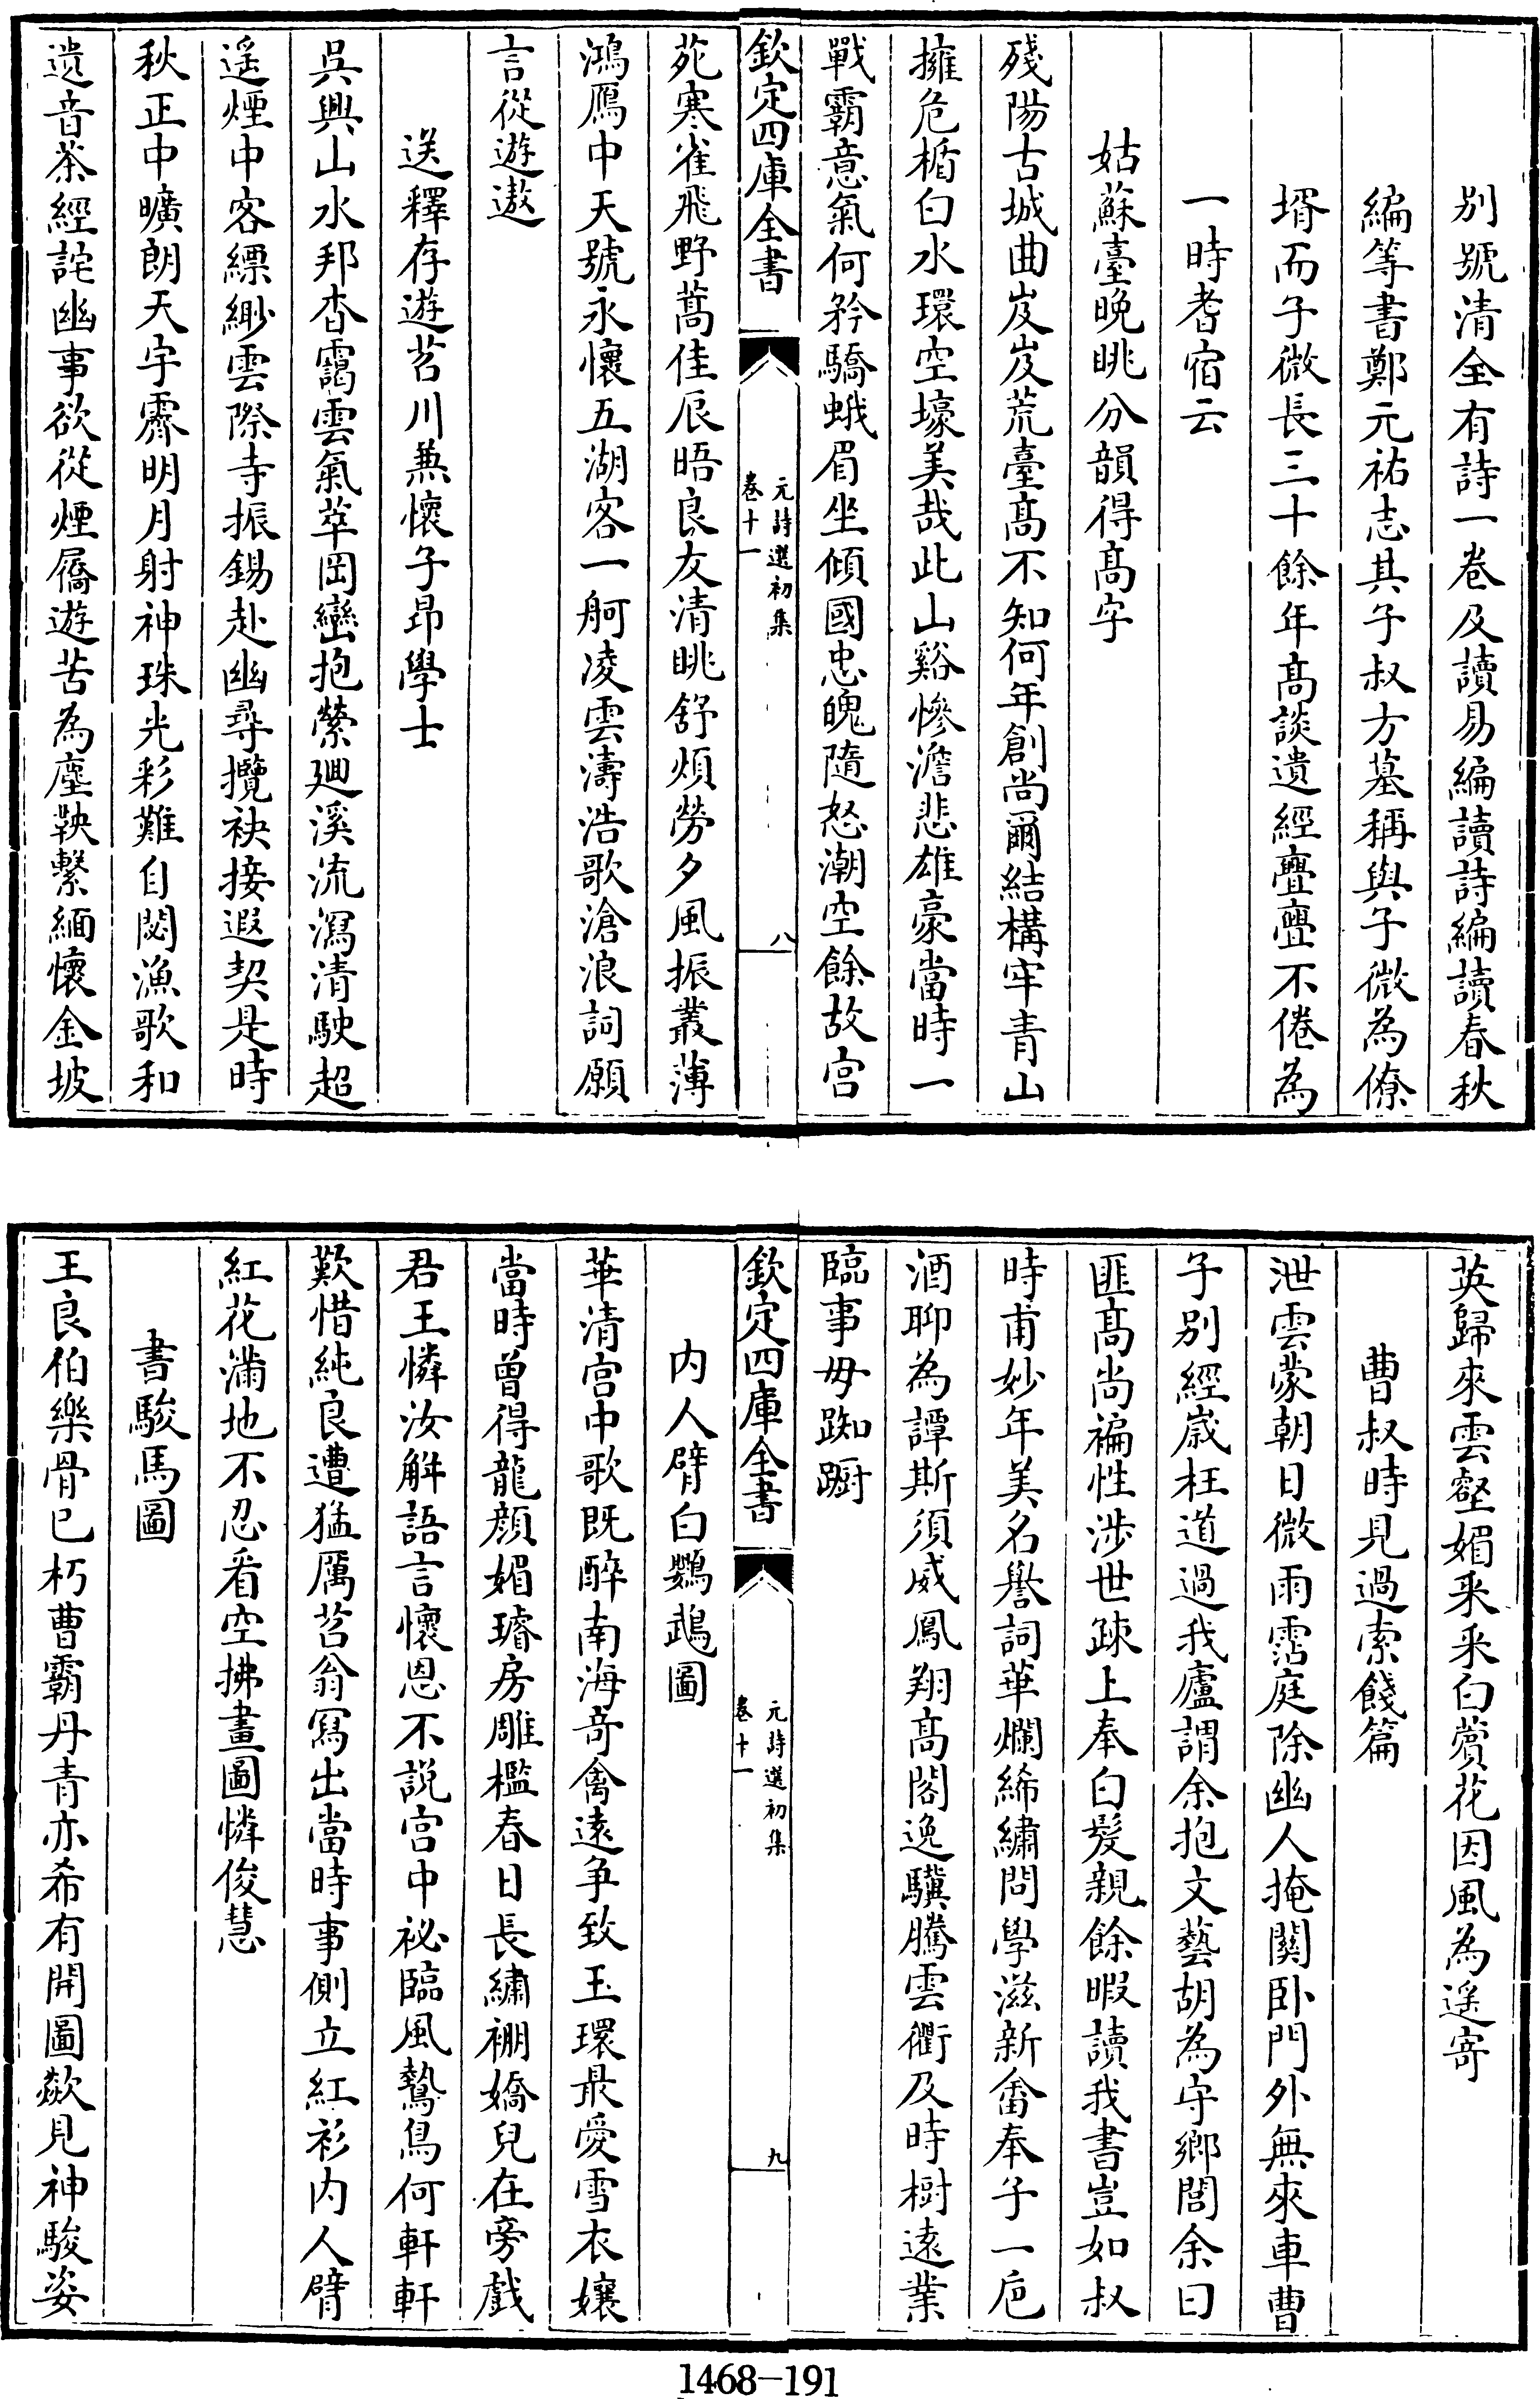 別號清全有詩一卷及讀易編讀詩編讀春秋
編等書鄭元祐志其子叔方墓稱與子微為僚
壻而子微長三十餘年髙談遺經亹亹不倦為
一時耆宿云
姑蘇臺晚眺分韻得髙字
殘陽古城曲岌岌荒臺髙不知何年創尚爾結構牢青山
擁危楯白水環空壕美哉此山谿慘澹悲雄豪當時一
戰霸意氣何矜驕蛾眉坐傾國忠魄隨怒潮空餘故宫
欽定四庫全書
元詩選初集
卷十一
八
苑寒雀飛野蒿佳辰晤良友清眺舒煩勞夕風振叢薄
鴻鴈中天號永懷五湖客一舸凌雲濤浩歌滄浪詞願
言從遊遨
送釋存遊苕川兼懷子昂學士
吳興山水邦杳靄雲氣萃岡巒抱縈廻溪流瀉清駛超
遥煙中客縹緲雲際寺振錫赴幽尋攬袂接遐契是時
秋正中曠朗天宇霽明月射神珠光彩難自閟漁歌和
遺音茶經詫幽事欲從煙屩遊苦為塵鞅繫緬懷金坡
英歸來雲壑媚采采白蘋花因風為遥寄
曹叔時見過索餞篇
泄雲蒙朝日微雨霑庭除幽人掩關卧門外無來車曹
子别經歲枉道過我廬謂余抱文藝胡為守鄉閭余曰
匪髙尚褊性涉世疎上奉白髮親餘暇讀我書豈如叔
時甫妙年美名譽詞華爛絺繡問學滋新畬奉子一巵
酒聊為譚斯須威鳳翔髙閣逸驥騰雲衢及時樹遠業
臨事毋踟蹰
欽定四庫全書
元詩選初集
卷十一
九
内人臂白鸚鵡圖
華清宫中歌既醉南海竒禽遠争致玉環最愛雪衣孃
當時曾得龍顔媚璿房雕檻春日長繡襧嬌兒在旁戲
君王憐汝解語言懷恩不説宫中祕臨風鷙鳥何軒軒
歎惜純良遭猛厲苕翁冩出當時事側立紅衫内人臂
紅花滿地不忍看空拂畫圖憐俊慧
書駿馬圖
王良伯樂骨已朽曹霸丹青亦希有開圖歘見神駿姿
1468-191